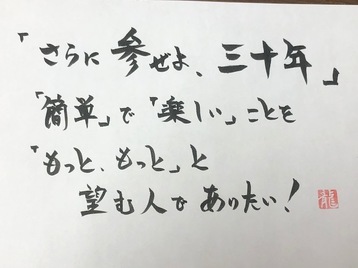 「さらに参ぜよ、三十年」
「簡単」で「楽しい」ことを
「もっと、もっと」と
望む人でありたい!
龍